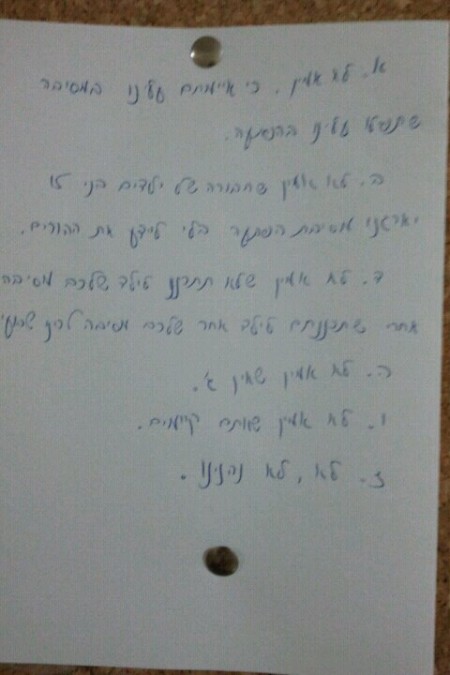 א. לא אמין. כי איימתם עלינו במסיבה
שתנסו עלינו בהפתעה.
ב. לא אמין שחבורה של ילדים בני 16
יארגנו מסיבת הפתעה בלי ליידע את ההורים.
ד. לא אמין שלא תתכננו לילד שלכם מסיבה
אחרי שתכננתם לילד אחר שלכם מסיבה לפני
ה. לא אמין שאין ג'.
ו. לא אמין שאתם קיימים.
ז. לא, לא נהנינו.